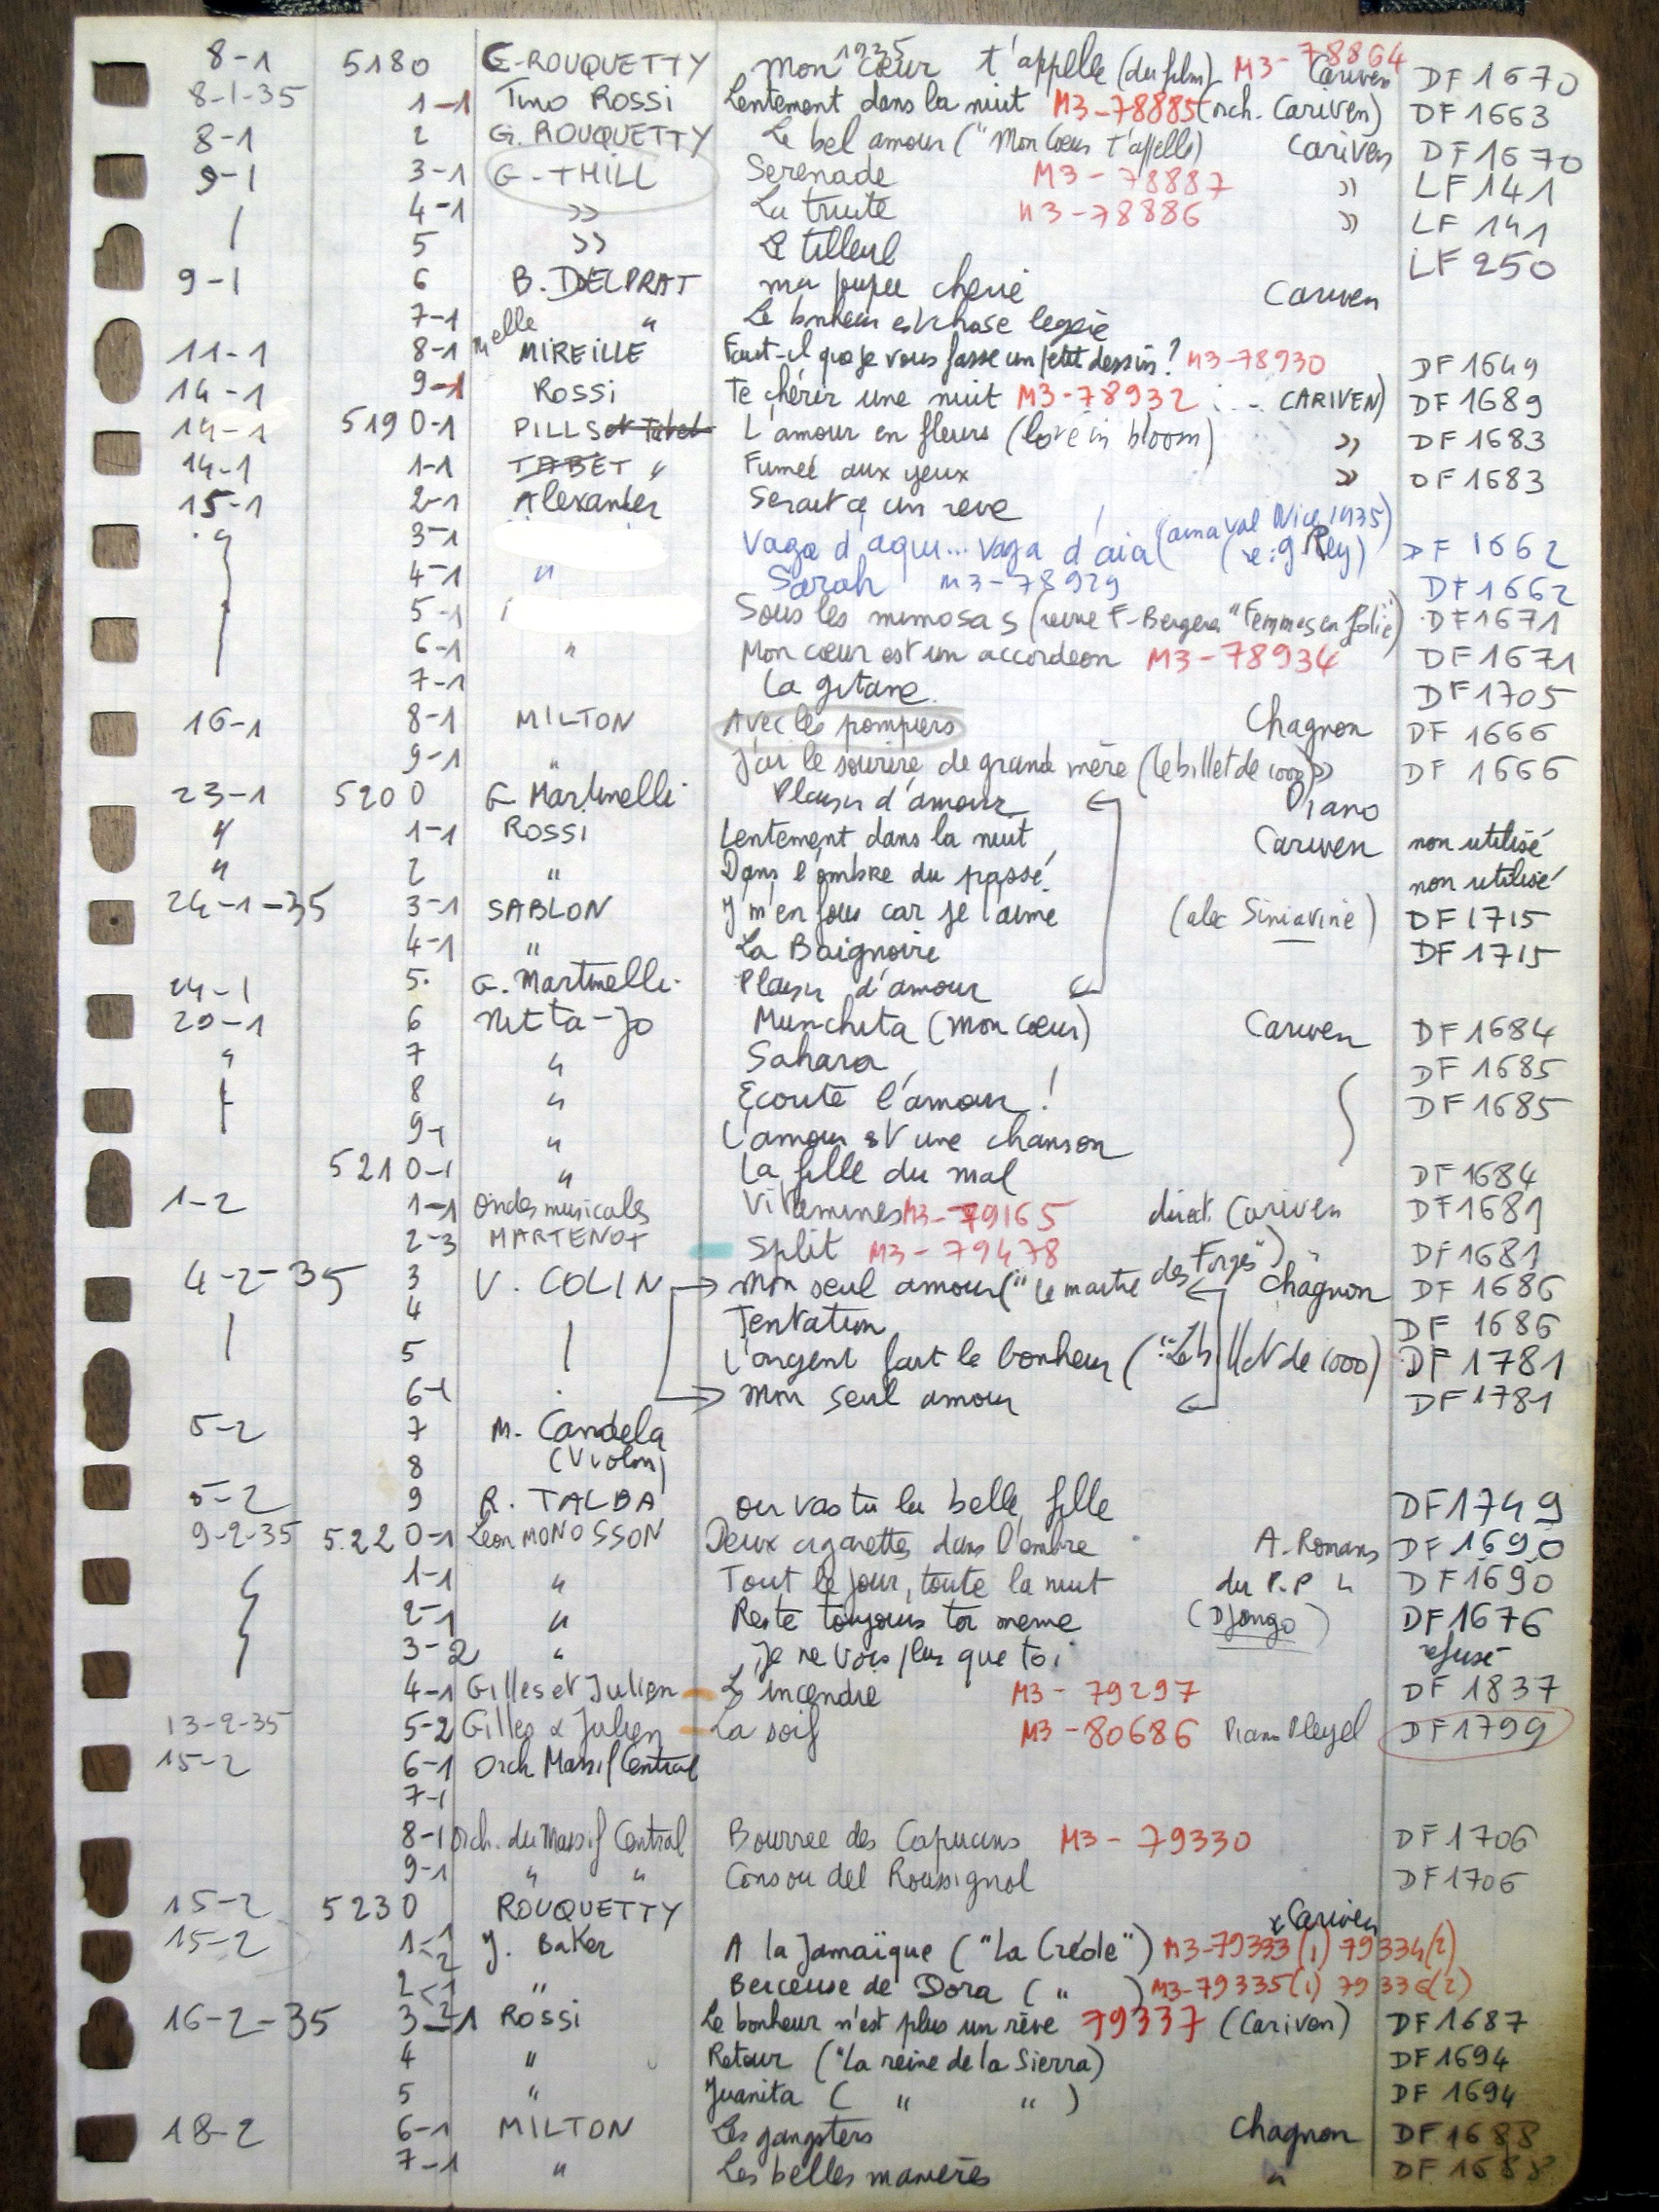 8-1 5180 G-ROUQUETTY Mon cœur t'appelle (du film) 1935 M3-78864 Cariven DF 1670
8-1-35 1-1 Tino ROSSI Lentement dans la nuit M3-78885 (orch. Cariven) DF 1663
8-1 2 G. ROUQUETTY Le bel amour ("Mon Cœur t'appelle) Cariven DF 1670
9-1 3-1 G-THILL Serenade M3-78887 " LF 141
4-1 " La truite M3-78886 " LF 141
5 " Le tilleul LF 250
9-1 6 B. DELPRAT ma poupée cherie Cariven
7-1 " Le bonheur est chose legere
11-1 8-1 Melle MIREILLE Faut-il que je vous fasse un petit dessin? M3-78930 DF 1649
14-1 9-1 ROSSI Te chérir une nuit M3-78932 CARIVEN) DF 1689
14-1 5190-1 PILLS et Tabet L'amour en fleurs (love in bloom) " DF 1683
14-1 1-1 TABET " Fumée aux yeux " DF 1683
15-1 2-1 Alexander Serait ce un reve
3-1 Vaga d'aqui... Vaga d'aia (carnaval Nice 1935) (re: g Rey) DF 1662
4-1 " Sarah M3-78929 DF 1662
5-1 Sous les mimosas (revue F-Bergere "Femmes en folie") DF 1671
6-1 " Mon cœur est un accordeon M3-78934 DF 1671
7-1 La gitane DF 1705
16-1 8-1 MILTON Avec les pompiers Chagnon DF 1666
9-1 " J'ai le sourire de grand mère (le billet de 1000) " DF 1666
23-1 5200 G Martinelli Plaisir d'amour Piano
" 1-1 ROSSI Lentement dans la nuit Cariven non utilisé
" 2 " Dans l'ombre du passé non utilisé
24-1-35 3-1 SABLON J'm'en fous car je l'aime (alec Siniavine) DF 1715
4-1 " La Baignoire DF 1715
24-1 5. G. Martinelli. Plaisir d'amour
29-1 6 Nitta-Jo Munchita (mon cœur) Cariven DF 1684
" 7 " Sahara DF 1685
8 " Ecoute l'amour! DF 1685
9-1 " L'amour est une chanson
5210-1 " La fille du mal DF 1684
1-2 1-1 Ondes musicales Vitamines M3-79165 direct. Cariven DF 1681
2-3 MARTENOT Split M3-79478 " DF 1681
4-2-35 3 V. COLIN Mon seul amour ("Le maitre des Forges") Chagnon DF 1686
4 Tentation DF 1686
5 L'argent fait le bonheur ("Le billet de 1000) DF 1781
6-1 Mon seul amour DF 1781
5-2 7 M. Candela
8 (Violon)
5-2 9 R. TALBA ou vas tu la belle fille DF 1749
9-2-35 5220-1 Léon MONOSSON Deux cigarettes dans l'ombre A. Romans DF 1690
1-1 " Tout le jour, toute la nuit du P.P " DF 1690
2-1 " Reste toujours toi meme (Django) DF 1676
3-2 " Je ne vois plus que toi refusé
4-1 Gilles et Julien L'incendie M3-79297 DF 1837
13-2-35 5-2 Gilles & Julien La soif M3-80686 Piano Pleyel DF 1799
15-2 6-1 Orch Massif Central
7-1
8-1 Orch. du Massif Central Bourree des Capucins M3-79330 DF 1706
9-1 " " Consou del Roussignol DF 1706
15-2 5230 ROUQUETTY
15-2 1-1 2 J. Baker A la Jamaïque ("La Créole") x Cariven M3-79333(1) 79334(2)
2-1 2 " Berceuse de Dora ( " ) M3-79335(1) 79336(2)
16-2-35 3-1 ROSSI Le bonheur n'est plus un rêve 79337 (Cariven) DF 1687
4 " Retour ("La reine de la Sierra) DF 1694
5 " Juanita ( " " ) DF 1694
18-2 6-1 MILTON Les gangsters Chagnon DF 1688
7-1 " Les belles manières " DF 1688